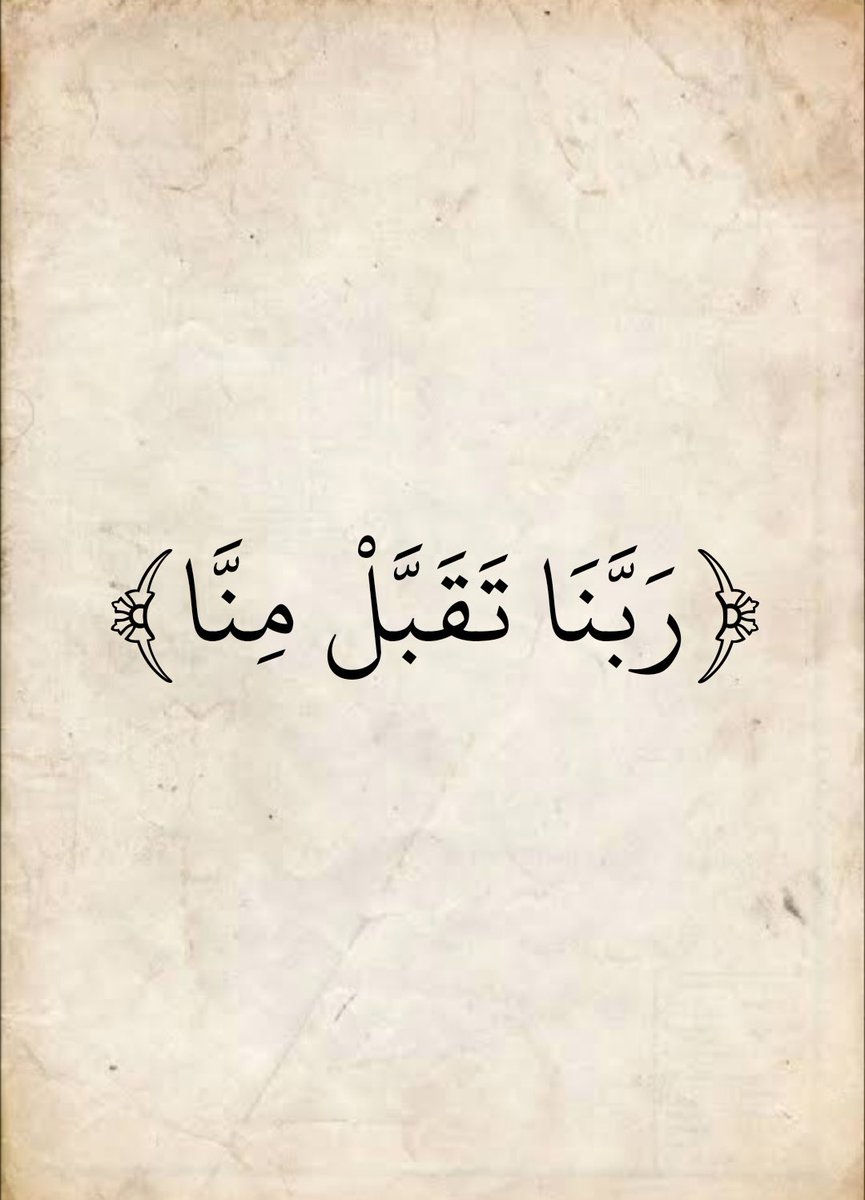 ﴿رَبَّنَا تَقَبَّلْ مِنَّا﴾